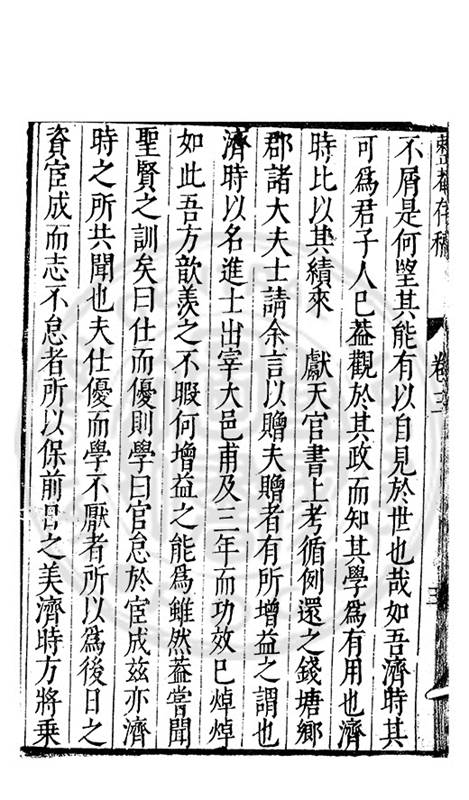 整菴存稿 卷三 三
不屑是何望其能有以自見於世也哉如吾濟時其
可爲君子人已葢觀於其政而知其學爲有用也濟
時比以其績來 獻天官書上考循例還之錢塘鄉
郡諸大夫士請余言以贈夫贈者有所增益之謂也
濟時以名進士出宰大邑甫及三年而功效已焯焯
如此吾方歆羨之不暇何增益之能爲雖然葢嘗聞
聖賢之訓矣曰仕而優則學曰官怠於宦成兹亦濟
時之所共聞也夫仕優而學不厭者所以爲後日之
資宦成而志不怠者所以保前日之美濟時方將乗